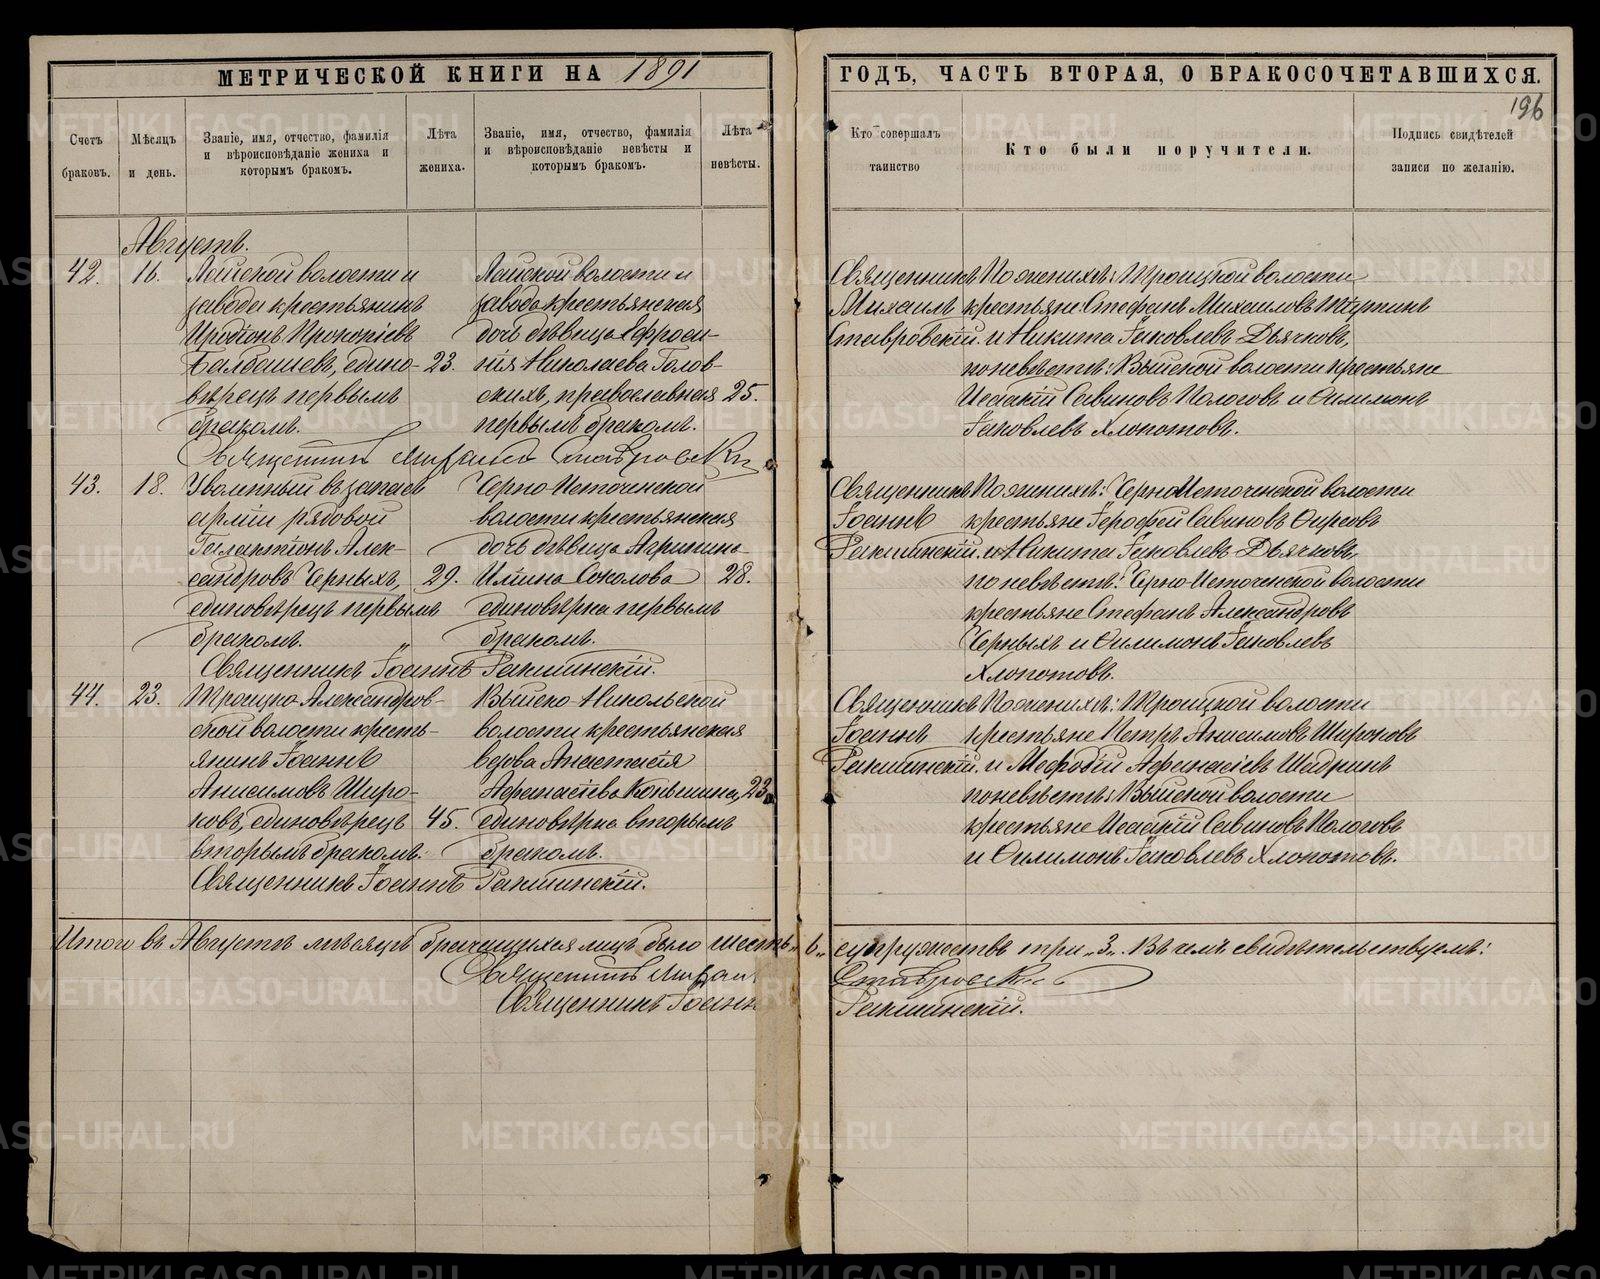 МЕТРИЧЕСКОЙ КНИГИ НА 1891
Счетъ браковъ.
Мѣсяцъ и день.
Званіе, имя, отчество, фамилія
и вѣроисповѣданіе жениха и
которымъ бракомъ.
Лѣта жениха.
Званіе, имя, отчество, фамилія
и вѣроисповѣданіе невѣсты и
которымъ бракомъ.
Лѣта невѣсты.
Августъ.
42. 16. Лайской волости и
завода крестьянинъ
Иродіонъ Прокопіевъ
Балдашевъ, едино-
вѣрецъ первымъ
бракомъ.
23.
Лайской волости и
завода крестьянская
дочь дѣвица Ефроси-
нія Николаева Голов-
скихъ, православная
первымъ бракомъ.
25.
Священникъ Михаилъ Ставровскій
43. 18. Уволенный въ запасъ
арміи рядовой
Галактіонъ Алек-
сандровъ Черныхъ,
единовѣрецъ первымъ
бракомъ.
29.
Черно-Источенской
волости крестьянская
дочь дѣвица Агрипина
Илiина Соколова
единовѣрка первымъ
бракомъ.
28.
Священникъ Іоаннъ Ракшинскій.
44. 23. Троицко-Александров-
ской волости кресть-
янинъ Іоаннъ
Анисимовъ Широ-
ковъ, единовѣрецъ
вторымъ бракомъ.
45.
Выйско-Никольской
волости крестьянская
вдова Анастасія
Афанасіева Коньшина,
единовѣрка вторымъ
бракомъ.
23.
Священникъ Іоаннъ Ракшинскій.
Итого въ Августѣ мѣсяцѣ брачащихся лицъ было шесть „6„
Священникъ Михаилъ
Священникъ Іоаннъ
ГОДЪ, ЧАСТЬ ВТОРАЯ, О БРАКОСОЧЕТАВШИХСЯ.
196
Кто совершалъ таинство
Кто были поручители.
Подпись свидѣтелей
записи по желанію.
Священникъ
Михаилъ
Ставровскій.
По женихѣ: Троицкой волости
крестьяне Стефанъ Михаиловъ
и Никита Іаковлевъ Дьячковъ,
по невѣстѣ: Выйской волости крестьяне
Исаакій Савиновъ Пологовъ и Филимонъ
Іаковлевъ Хлопотовъ.
Священникъ
Іоаннъ
Ракшинскій.
По женихѣ: Черно-Источенской волости
крестьяне Іерофей Савиновъ Фирсовъ
и Никита Іаковлевъ Дьячковъ,
по невѣстѣ: Черно-Источенской волости
крестьяне Стефанъ Александровъ
Черныхъ и Филимонъ Іаковлевъ
Хлопотовъ.
Священникъ
Іоаннъ
Ракшинскій.
По женихѣ: Троицкой волости
крестьяне Петръ Анисимовъ Широковъ
и Мефодій Афанасіевъ Шадринъ
по невѣстѣ: Выйской волости
крестьяне Исаакій Савиновъ Пологовъ
и Филимонъ Іаковлевъ Хлопотовъ.
супружествъ три „3„. Въ чемъ свидѣтельствуемъ:
Ставровскій
Ракшинскій.
METRIKI.GASO-URAL.RU